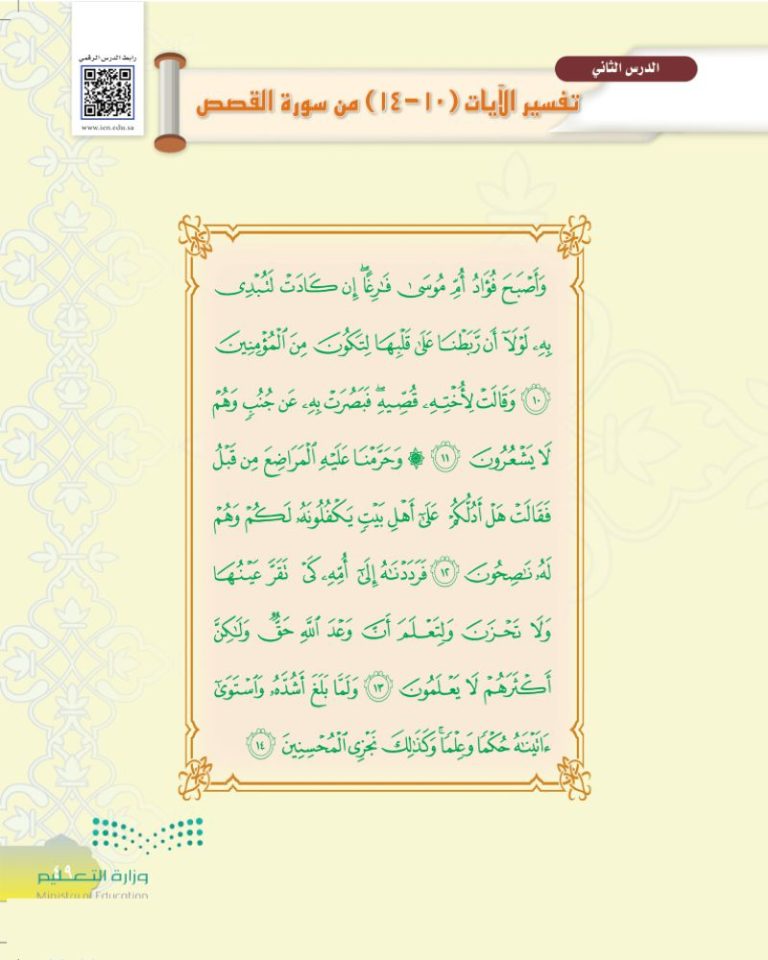 رابط الدرس الرقمي
www.ien.edu.sa
الدرس الثاني
تفسير الآيات (١٠-١٤) من سورة القصص
وَأَصْبَحَ فُؤَادُ أُمِّ مُوسَىٰ فَٰرِغًا ۖ إِن كَادَتْ لَتُبْدِى
بِهِۦ لَوْلَآ أَن رَّبَطْنَا عَلَىٰ قَلْبِهَا لِتَكُونَ مِنَ ٱلْمُؤْمِنِينَ
١٠ وَقَالَتْ لِأُخْتِهِۦ قُصِّيهِ ۖ فَبَصُرَتْ بِهِۦ عَن جُنُبٍ وَهُمْ
لَا يَشْعُرُونَ ١١ ۞ وَحَرَّمْنَا عَلَيْهِ ٱلْمَرَاضِعَ مِن قَبْلُ
فَقَالَتْ هَلْ أَدُلُّكُمْ عَلَىٰٓ أَهْلِ بَيْتٍ يَكْفُلُونَهُۥ لَكُمْ وَهُمْ
لَهُۥ نَٰصِحُونَ ١٢ فَرَدَدْنَٰهُ إِلَىٰٓ أُمِّهِۦ كَىْ تَقَرَّ عَيْنُهَا
وَلَا تَحْزَنَ وَلِتَعْلَمَ أَنَّ وَعْدَ ٱللَّهِ حَقٌّ وَلَٰكِنَّ
أَكْثَرَهُمْ لَا يَعْلَمُونَ ١٣ وَلَمَّا بَلَغَ أَشُدَّهُۥ وَٱسْتَوَىٰٓ
ءَاتَيْنَٰهُ حُكْمًا وَعِلْمًا ۚ وَكَذَٰلِكَ نَجْزِى ٱلْمُحْسِنِينَ ١٤
وزارة التعليم
Ministry of Education
٤٩